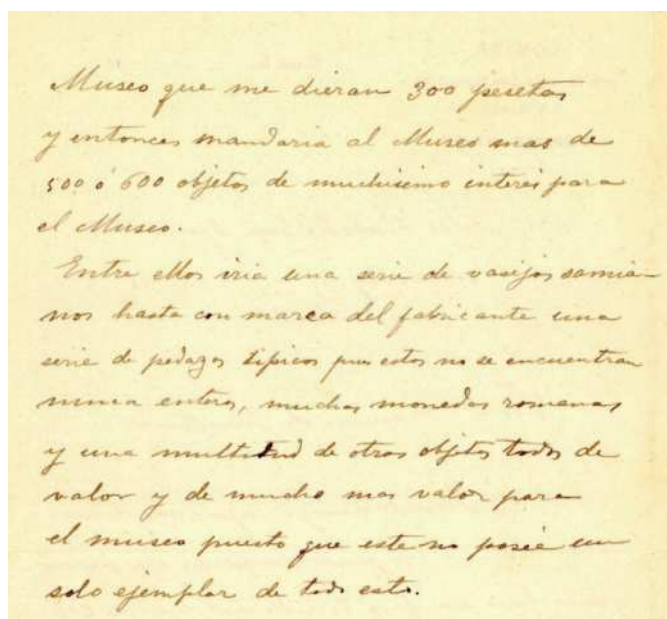 Museo que me dieran 300 pesetas
y entonces mandaria al Museo mas de
500 ó 600 objetos de muchisimo interes para
el Museo.
Entre ellos iria una serie de vasijas samia-
nos hasta con marca del fabricante una
serie de pedazos tipicos pues estos no se encuentran
nunca enteros, muchas monedas romanas
y una multitud de otros objetos todos de
valor y de mucho mas valor para
el museo puesto que este no poseé un
solo ejemplar de todo esto.